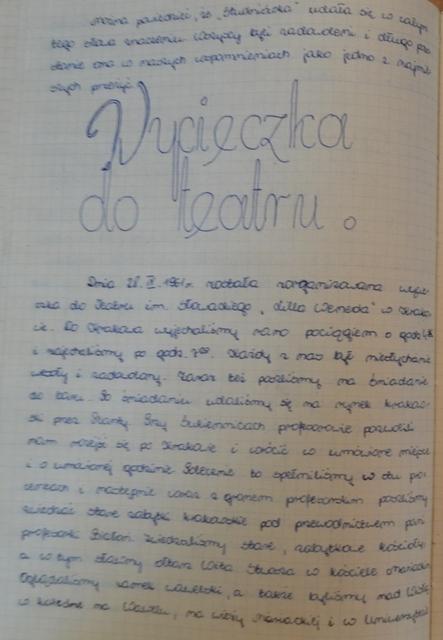 można powiedzieć, że "Studniówka" udała się w całym
tego słowa znaczeniu. Wszyscy byli zadowoleni i długo
ona w naszych wspomnieniach jako jedno z
przeżyć.
Wycieczka
do teatru.
Dnia 28. 1961r. została zorganizowana
do Teatru im. Słowackiego "Lilla Weneda" w
Do Krakowa wyjechaliśmy rano pociągiem o godz.
i zajechaliśmy po godz. 7. Każdy z nas był
wesoły i zadowolony. Zaraz też poszliśmy na śniadanie
do baru. Po śniadaniu udaliśmy się na rynek
przez Planty. Przy Sukiennicach profesorowie pozwolili
nam rozejść się po Krakowie i wrócić w umówione miejsce
i o umówionej godzinie. Polecenie to spełniliśmy w stu
i następnie wraz z gronem profesorskim poszliśmy
zwiedzać stare zabytki krakowskie pod przewodnictwem pani
profesorki. zwiedzaliśmy stare, zabytkowe kościoły,
a w tym sławny ołtarz Wita Stwosza w kościele
Oglądaliśmy zamek wawelski, a także byliśmy nad Wisłą,
w na Wawelu, na wieży mariackiej i w